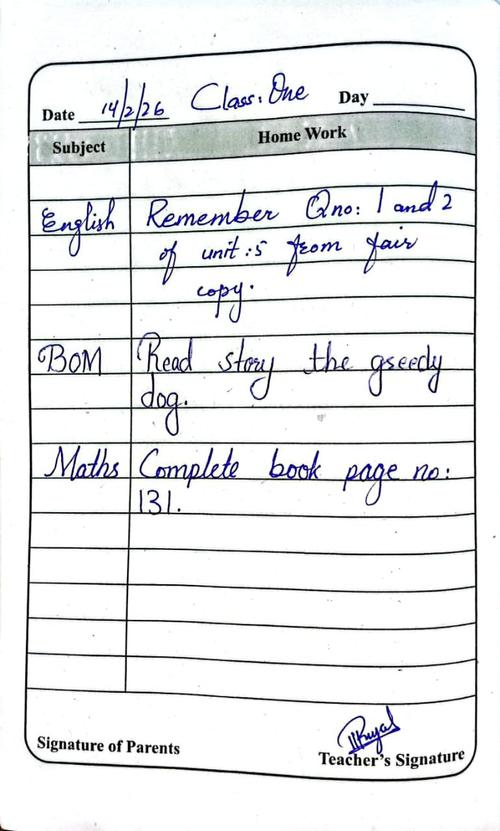 Date 14/2/26 Class: One Day
Subject Home Work
English Remember Qno: 1 and 2
of unit :5 from fair
copy.
BOM Read story the greedy
dog.
Maths Complete book page no:
131.
Signature of Parents
Teacher's Signature